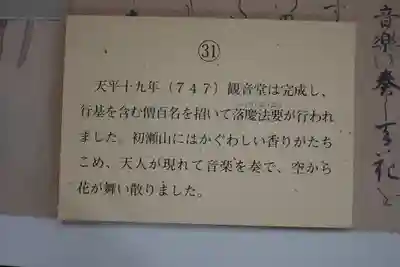 ㉛
天平十九年（747）観音堂は完成し、
行基を含む僧百名を招いて落慶法要が行われ
ました。初瀬山にはかぐわしい香りがたち
こめ、天人が現れて音楽を奏で、空から
花が舞い散りました。